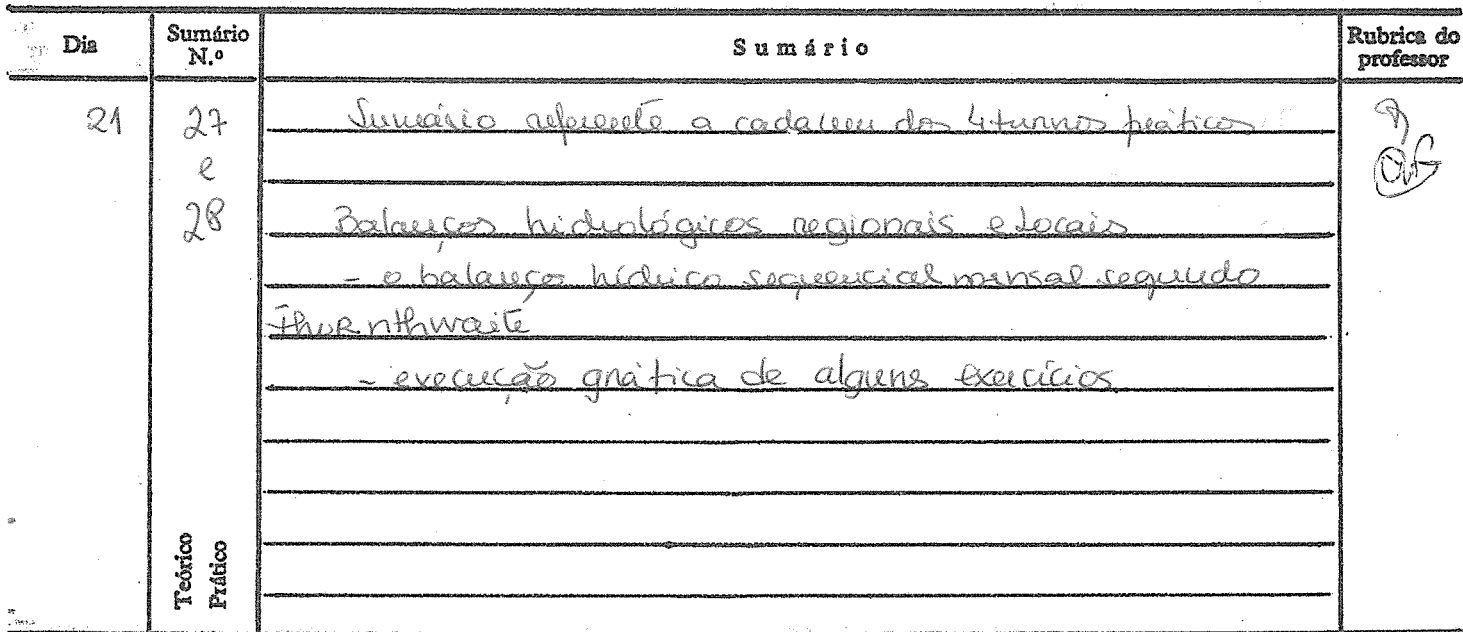 Dia
Sumário N.º
Sumário
Rubrica do professor
21
27 e 28
Sumário referente a cada um dos 4 turnos práticos
Balanços hidrológicos regionais e locais
- o balanço hídrico sequencial mensal segundo
Thornthwaite
- execução gráfica de alguns exercícios
Teórico
Prático